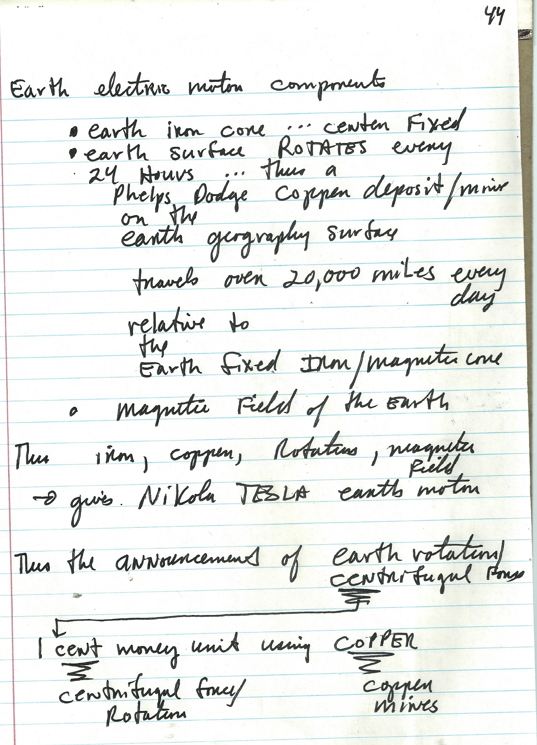 44
Earth electric motor components
• earth iron core ... center Fixed
• earth surface ROTATES every
24 Hours ... thus a
Phelps Dodge copper deposit/mine
on the
earth geography surface
travels over 20,000 miles every
day
relative to
the
Earth fixed Iron/magnetic core
• magnetic Field of the Earth
Thus iron, copper, Rotation, magnetic
Field
→ gives Nikola TESLA earth motor
Thus the announcement of earth rotation/
centrifugal Force
1 cent money unit using COPPER
centrifugal force/
Rotation
copper
mines